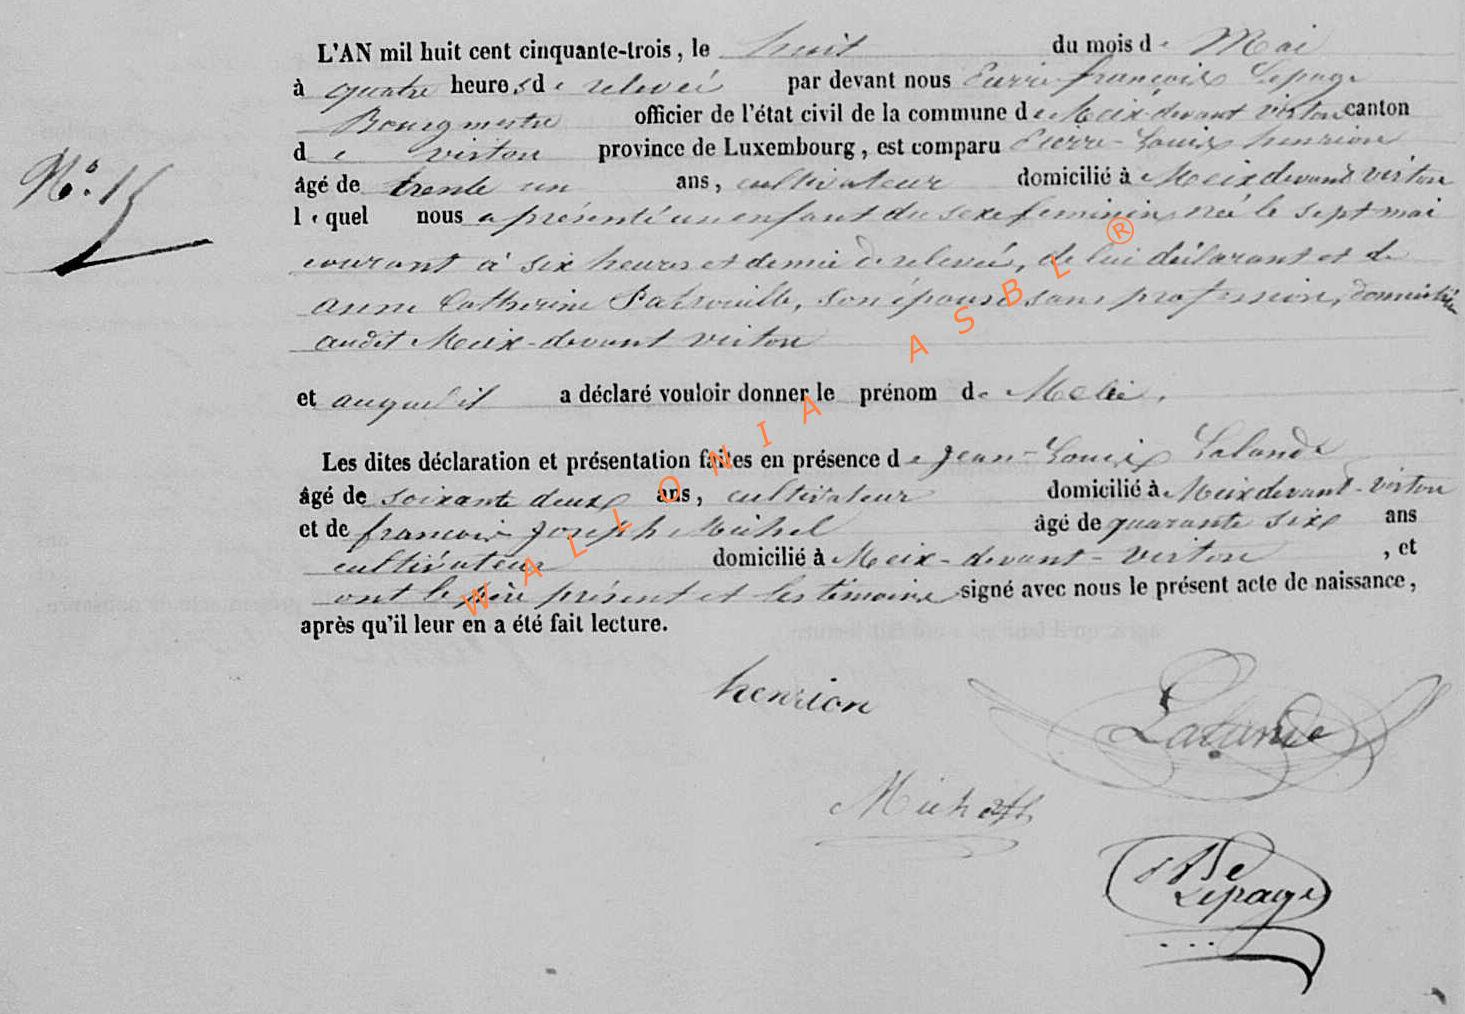 L'AN mil huit cent cinquante-trois, le huit du mois de Mai
à quatre heures de relevée par devant nous Pierre françois Lepage
Bourgmestre officier de l'état civil de la commune de Meix devant virton canton
de virton province de Luxembourg, est comparu Pierre-Louis henrion
âgé de trente un ans, cultivateur domicilié à Meix devant virton
lequel nous a présenté un enfant du sexe feminin, née le sept mai
courant à six heures et demie de relevée, de lui déclarant et de
anne Catherine Patrouille, son épouse sans profession, domiciliée
audit Meix-devant virton
et auquel il a déclaré vouloir donner le prénom de Melie.
Les dites déclaration et présentation faites en présence de Jean-Louis Lalande
âgé de soixante deux ans, cultivateur domicilié à Meix devant-virton
et de francois Joseph Michel âgé de quarante six ans
cultivateur domicilié à Meix-devant-virton, et
ont le père présent et les témoins signé avec nous le présent acte de naissance,
après qu'il leur en a été fait lecture.
N° 15
henrion
Lalande
Michel
Lepage
WALLONIA ASBL ®